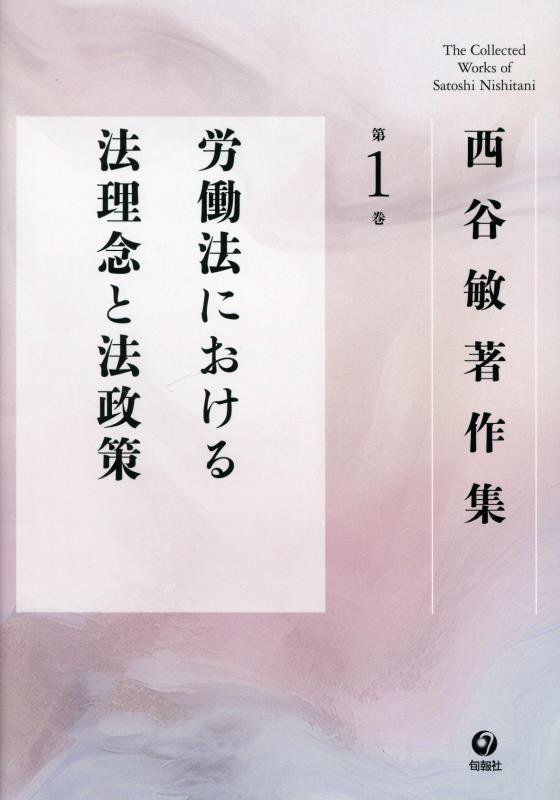 The Collected
Works of
Satoshi Nishitani
西谷敏著作集
第1巻
労働法における
法理念と法政策
旬報社